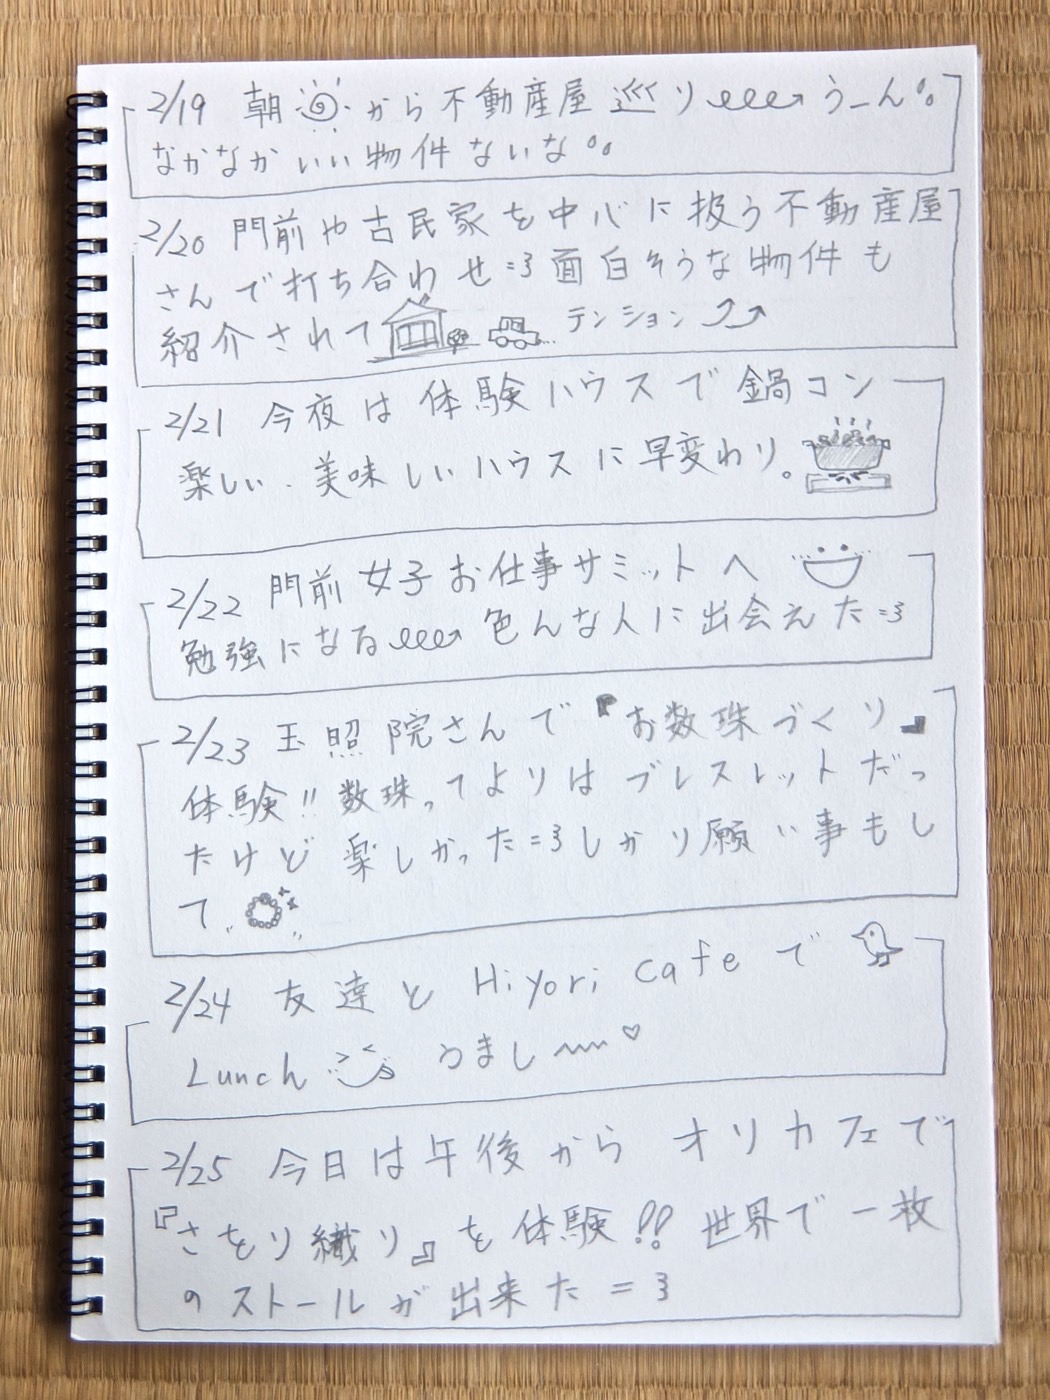 2/19 朝から不動産屋巡り うーん。
なかなかいい物件ないな。
2/20 門前や古民家を中心に扱う不動産屋
さんで打ち合わせ 面白そうな物件も
紹介されて テンション⤴⤴
2/21 今夜は体験ハウスで鍋コン
楽しい、美味しいハウスに早変わり。
2/22 門前女子お仕事サミットへ
勉強になる 色んな人に出会えた
2/23 玉照院さんで『お数珠づくり』
体験!! 数珠ってよりはブレスレットだっ
たけど楽しかった しかり願い事もし
て
2/24 友達と Hiyori cafe で
Lunch うまし〜♡
2/25 今日は午後から オリカフェで
『さをり織り』を体験!! 世界で一枚
のストールが出来た